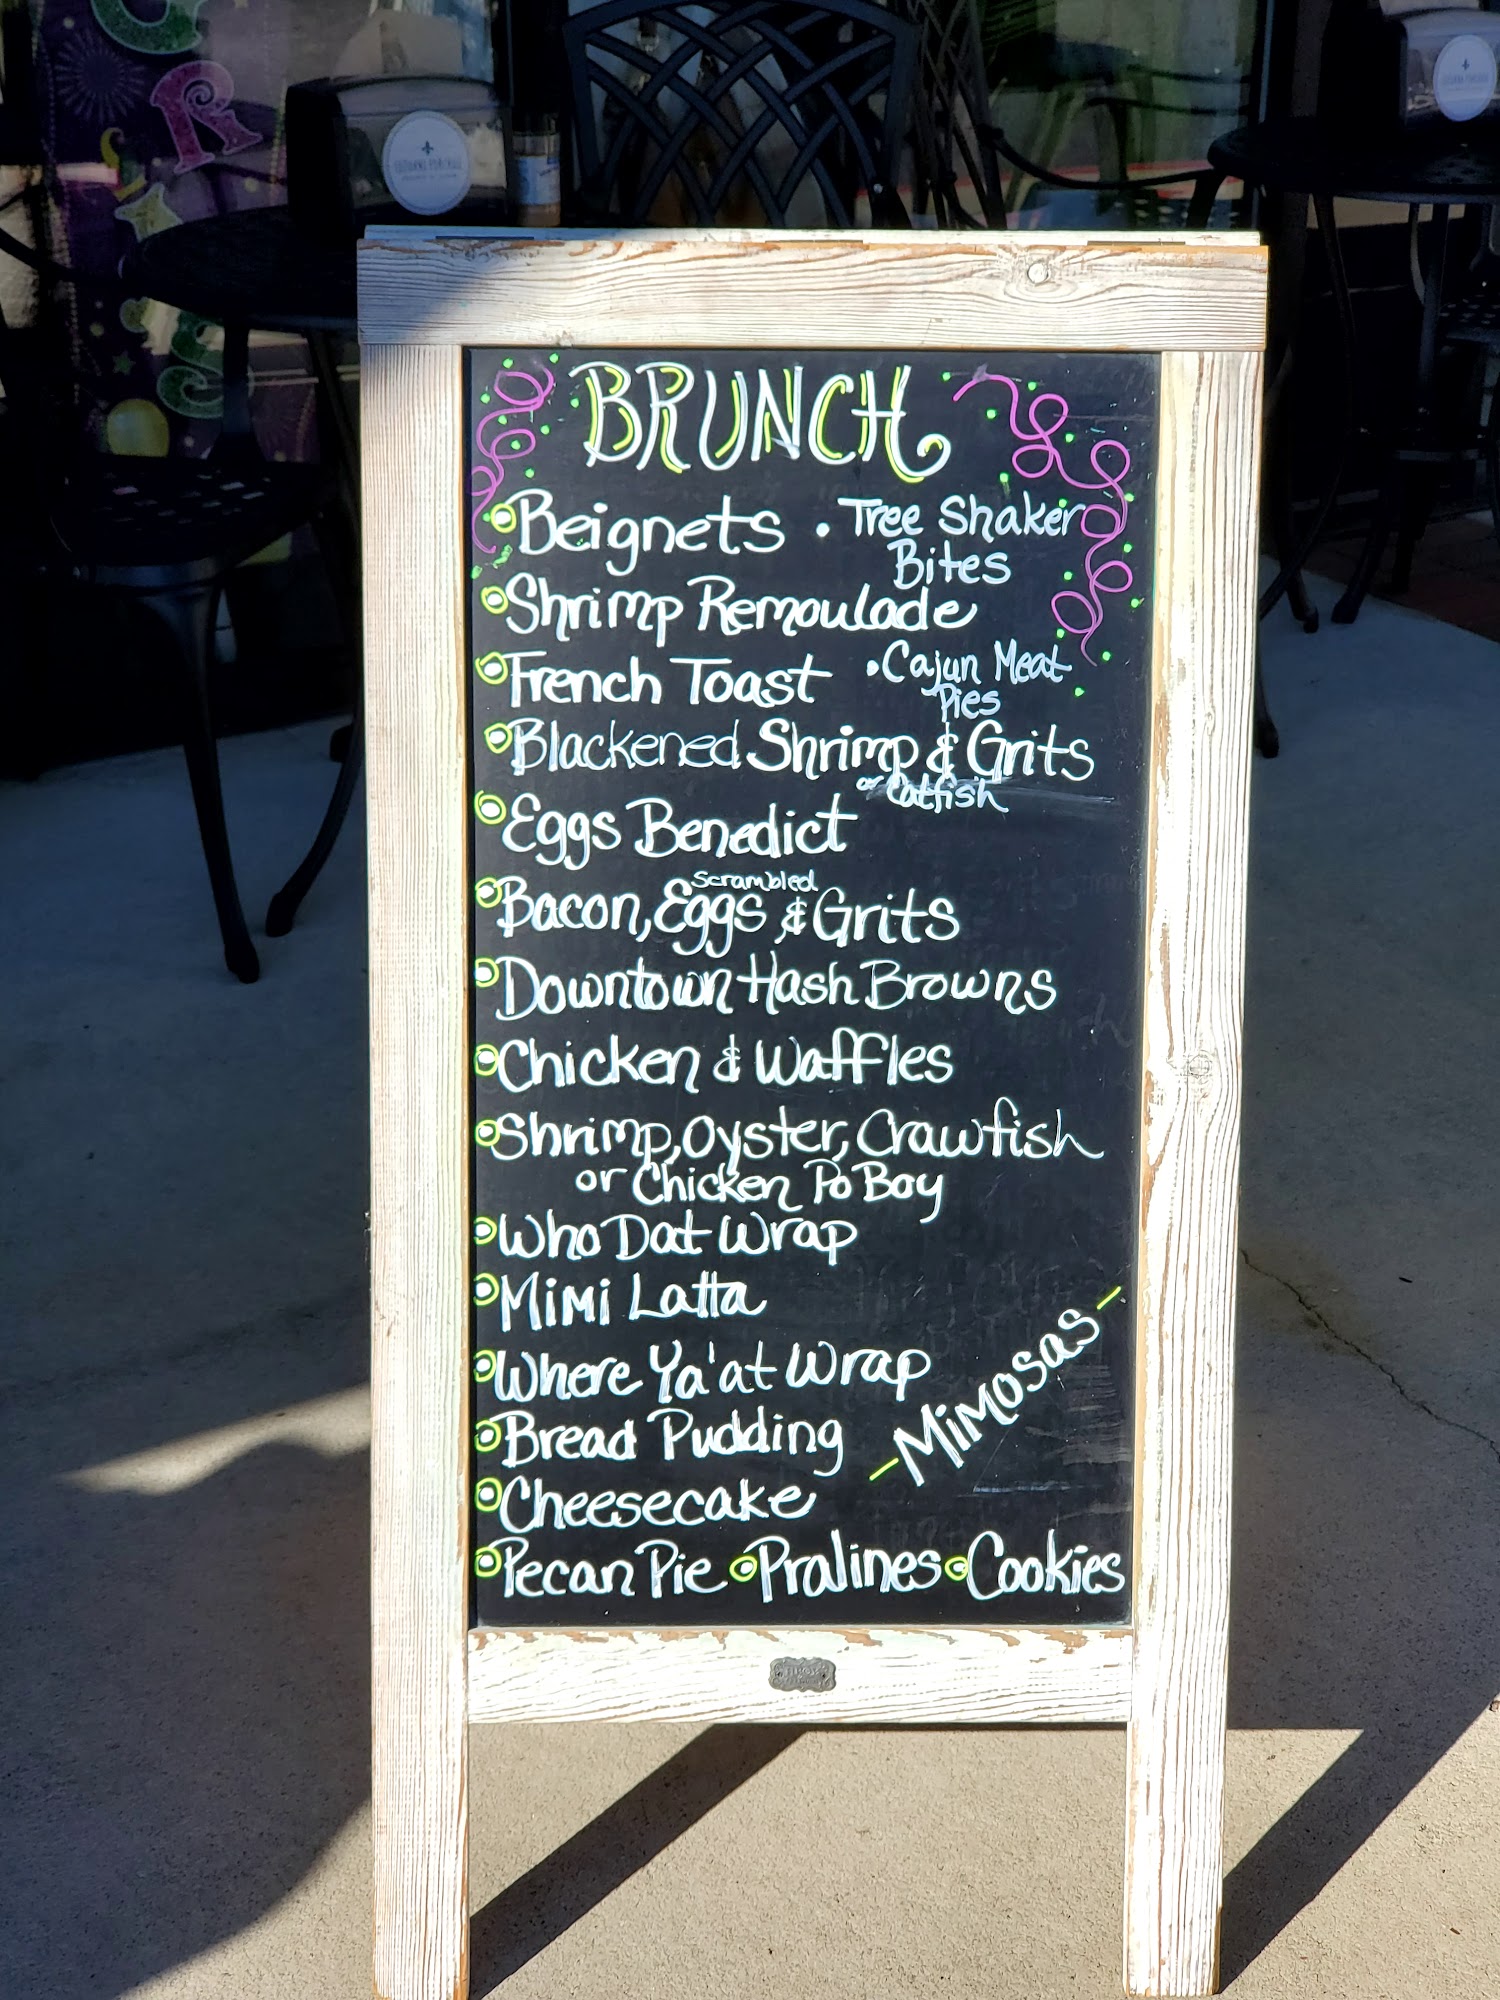 BRUNCH
Beignets • Tree Shaker
Bites
Shrimp Remoulade
French Toast • Cajun Meat
Pies
Blackened Shrimp & Grits
or Catfish
Eggs Benedict
Scrambled
Bacon, Eggs & Grits
Downtown Hash Browns
Chicken & Waffles
Shrimp, Oyster, Crawfish
or Chicken Po Boy
Who Dat Wrap
Mimi Latta
Where Ya'at Wrap
- Mimosas -
Bread Pudding
Cheesecake
Pecan Pie • Pralines • Cookies